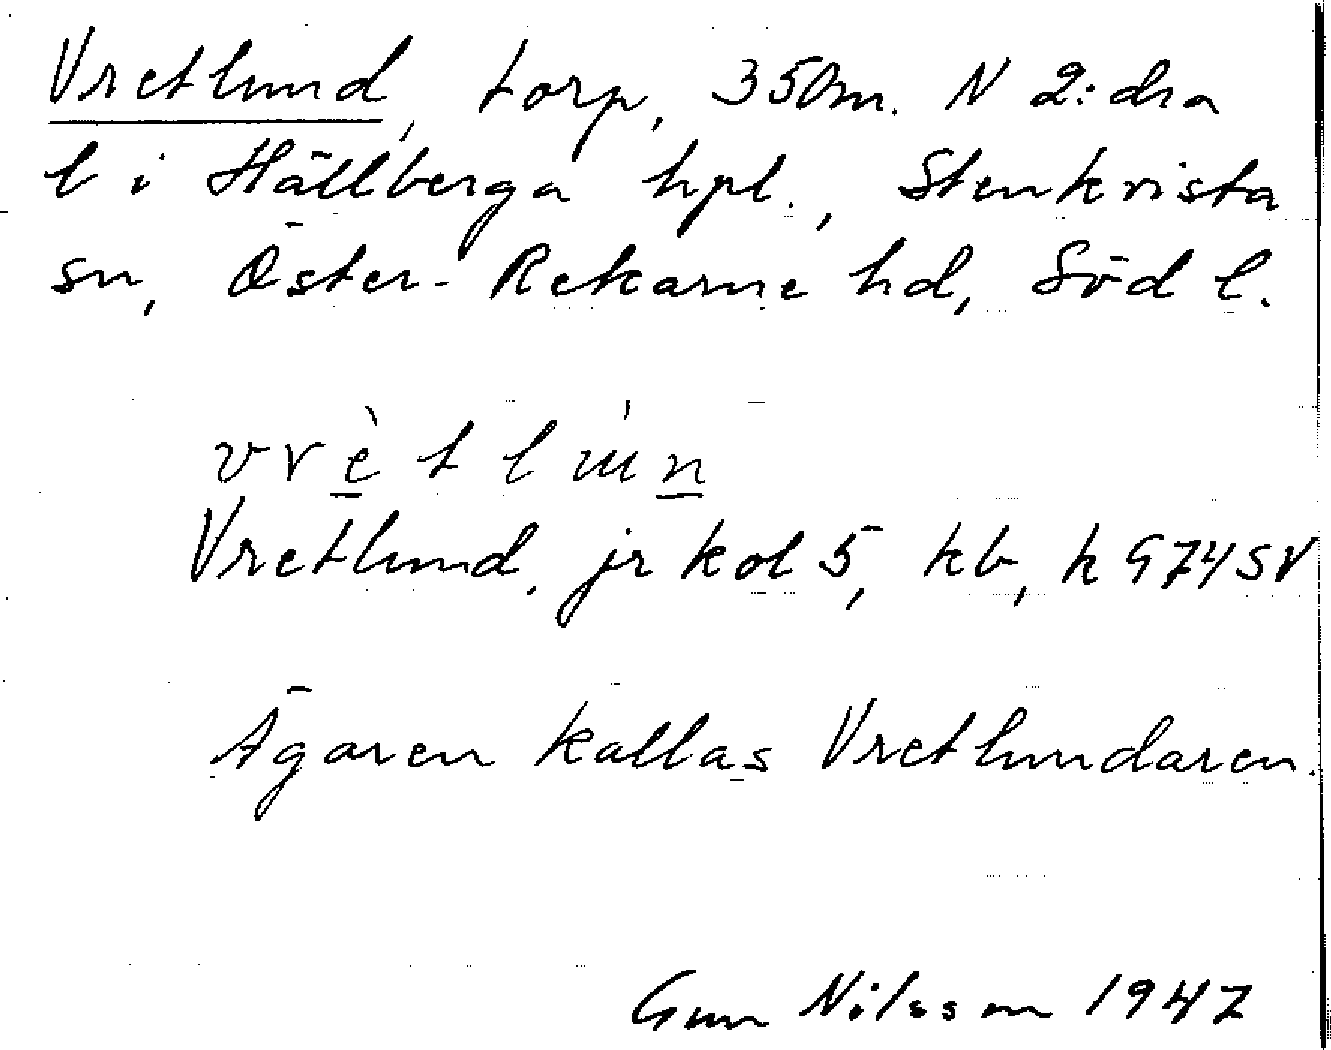 Vretlund, torp, 350m. N 2:dra
b i Hällberga hpl., Stenkvista
sn, Öster-Rekarne hd, Söd l.
vrètlún
Vretlund, jr kol 5, kb, k G74SV
Ägaren kallas Vretlundaren.
Gun Nilsson 1947